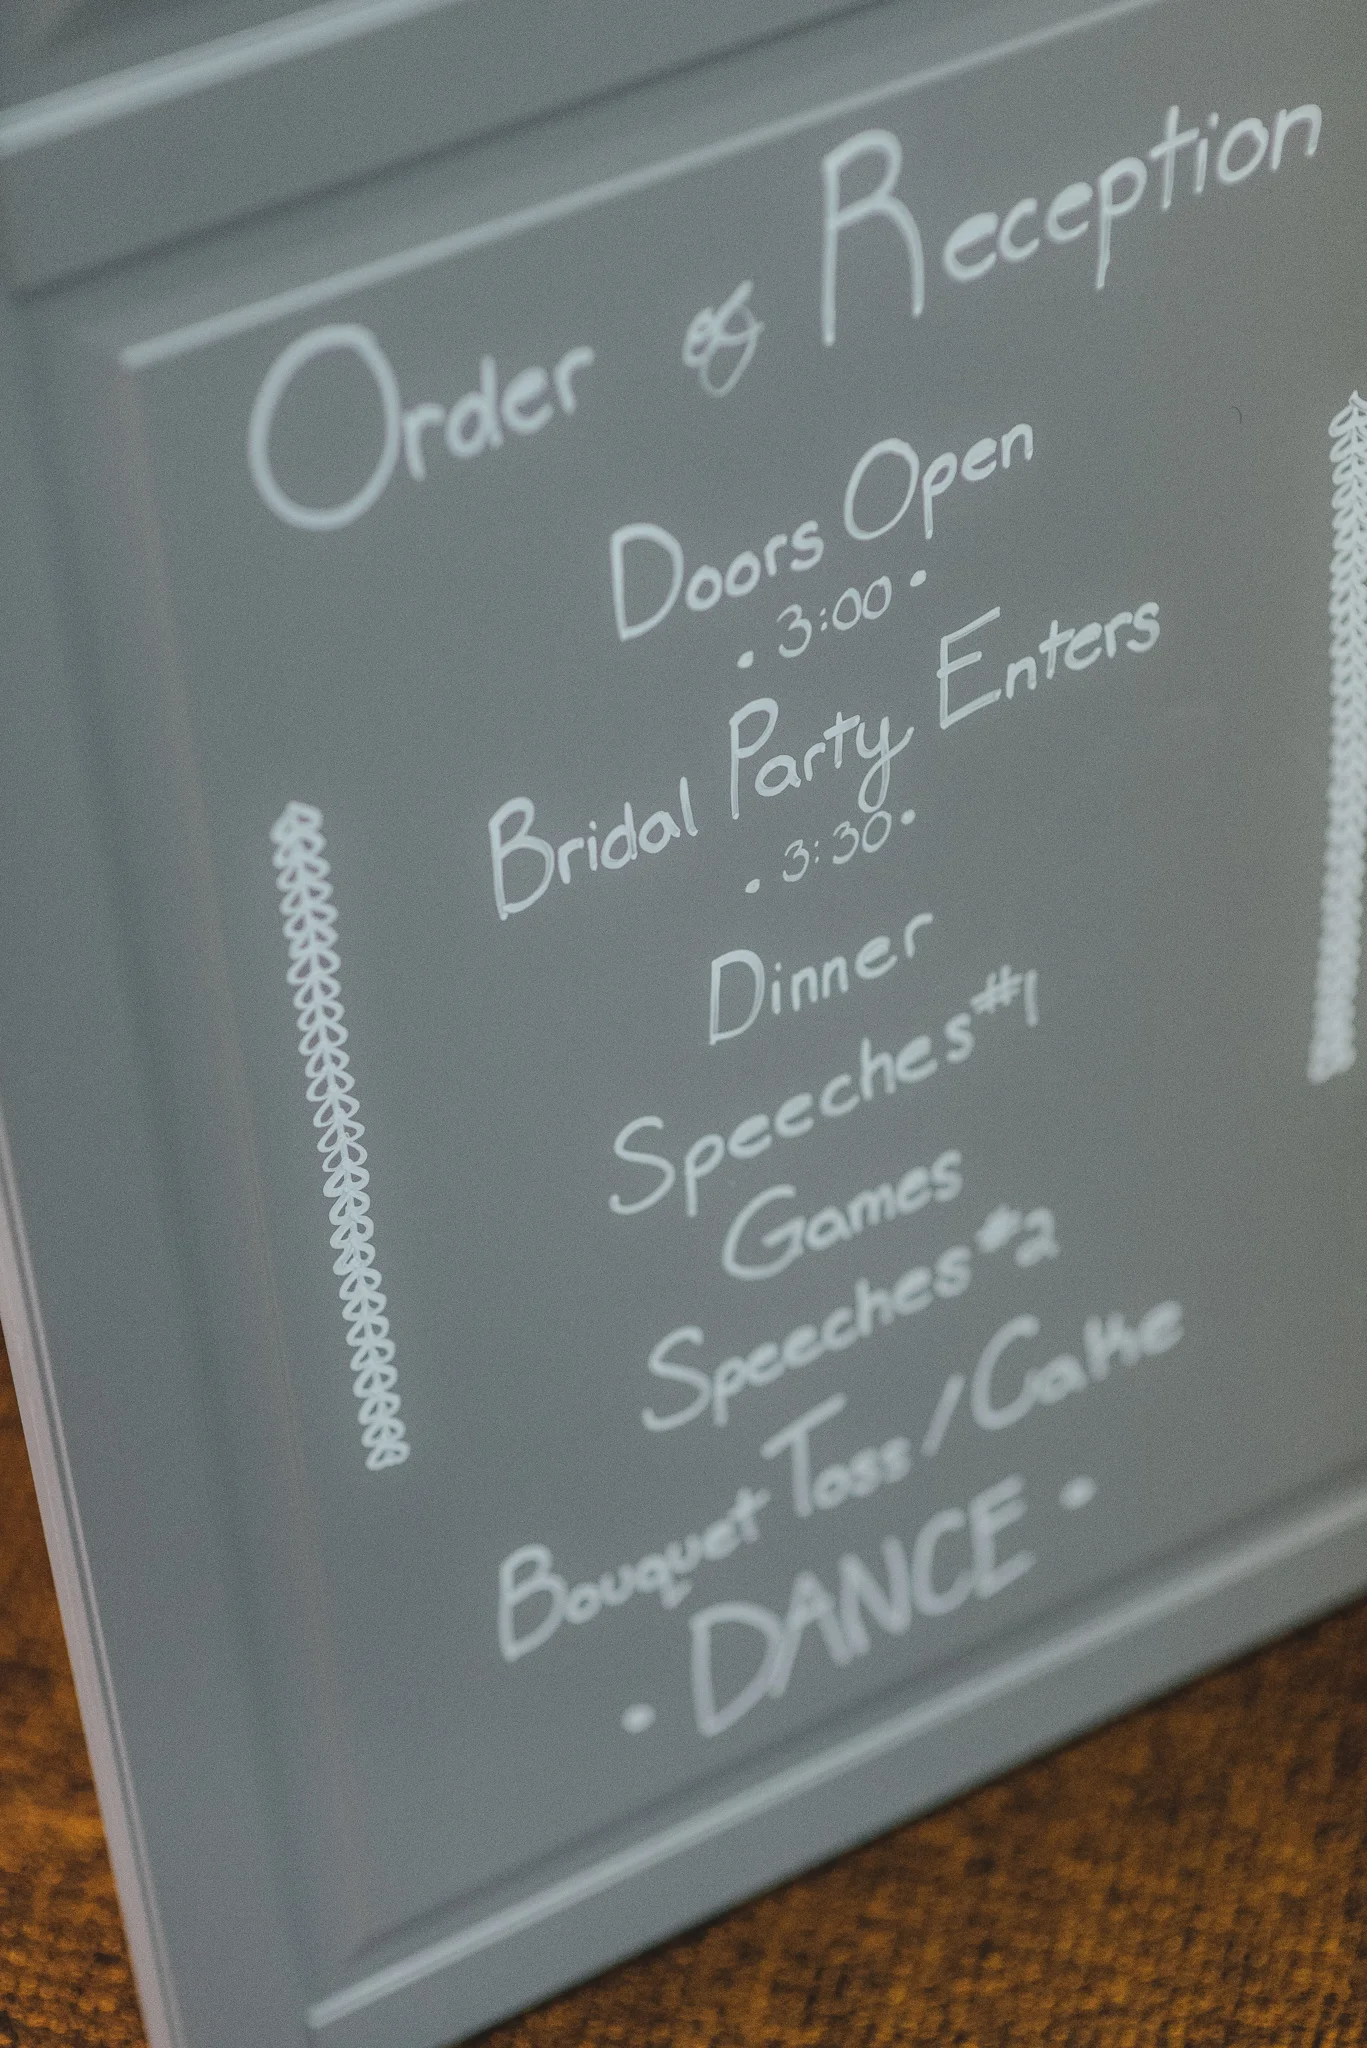 Order of Reception
Doors Open
• 3:00 •
Bridal Party Enters
• 3:30 •
Dinner
Speeches #1
Games
Speeches #2
Bouquet Toss / Cake
• DANCE •